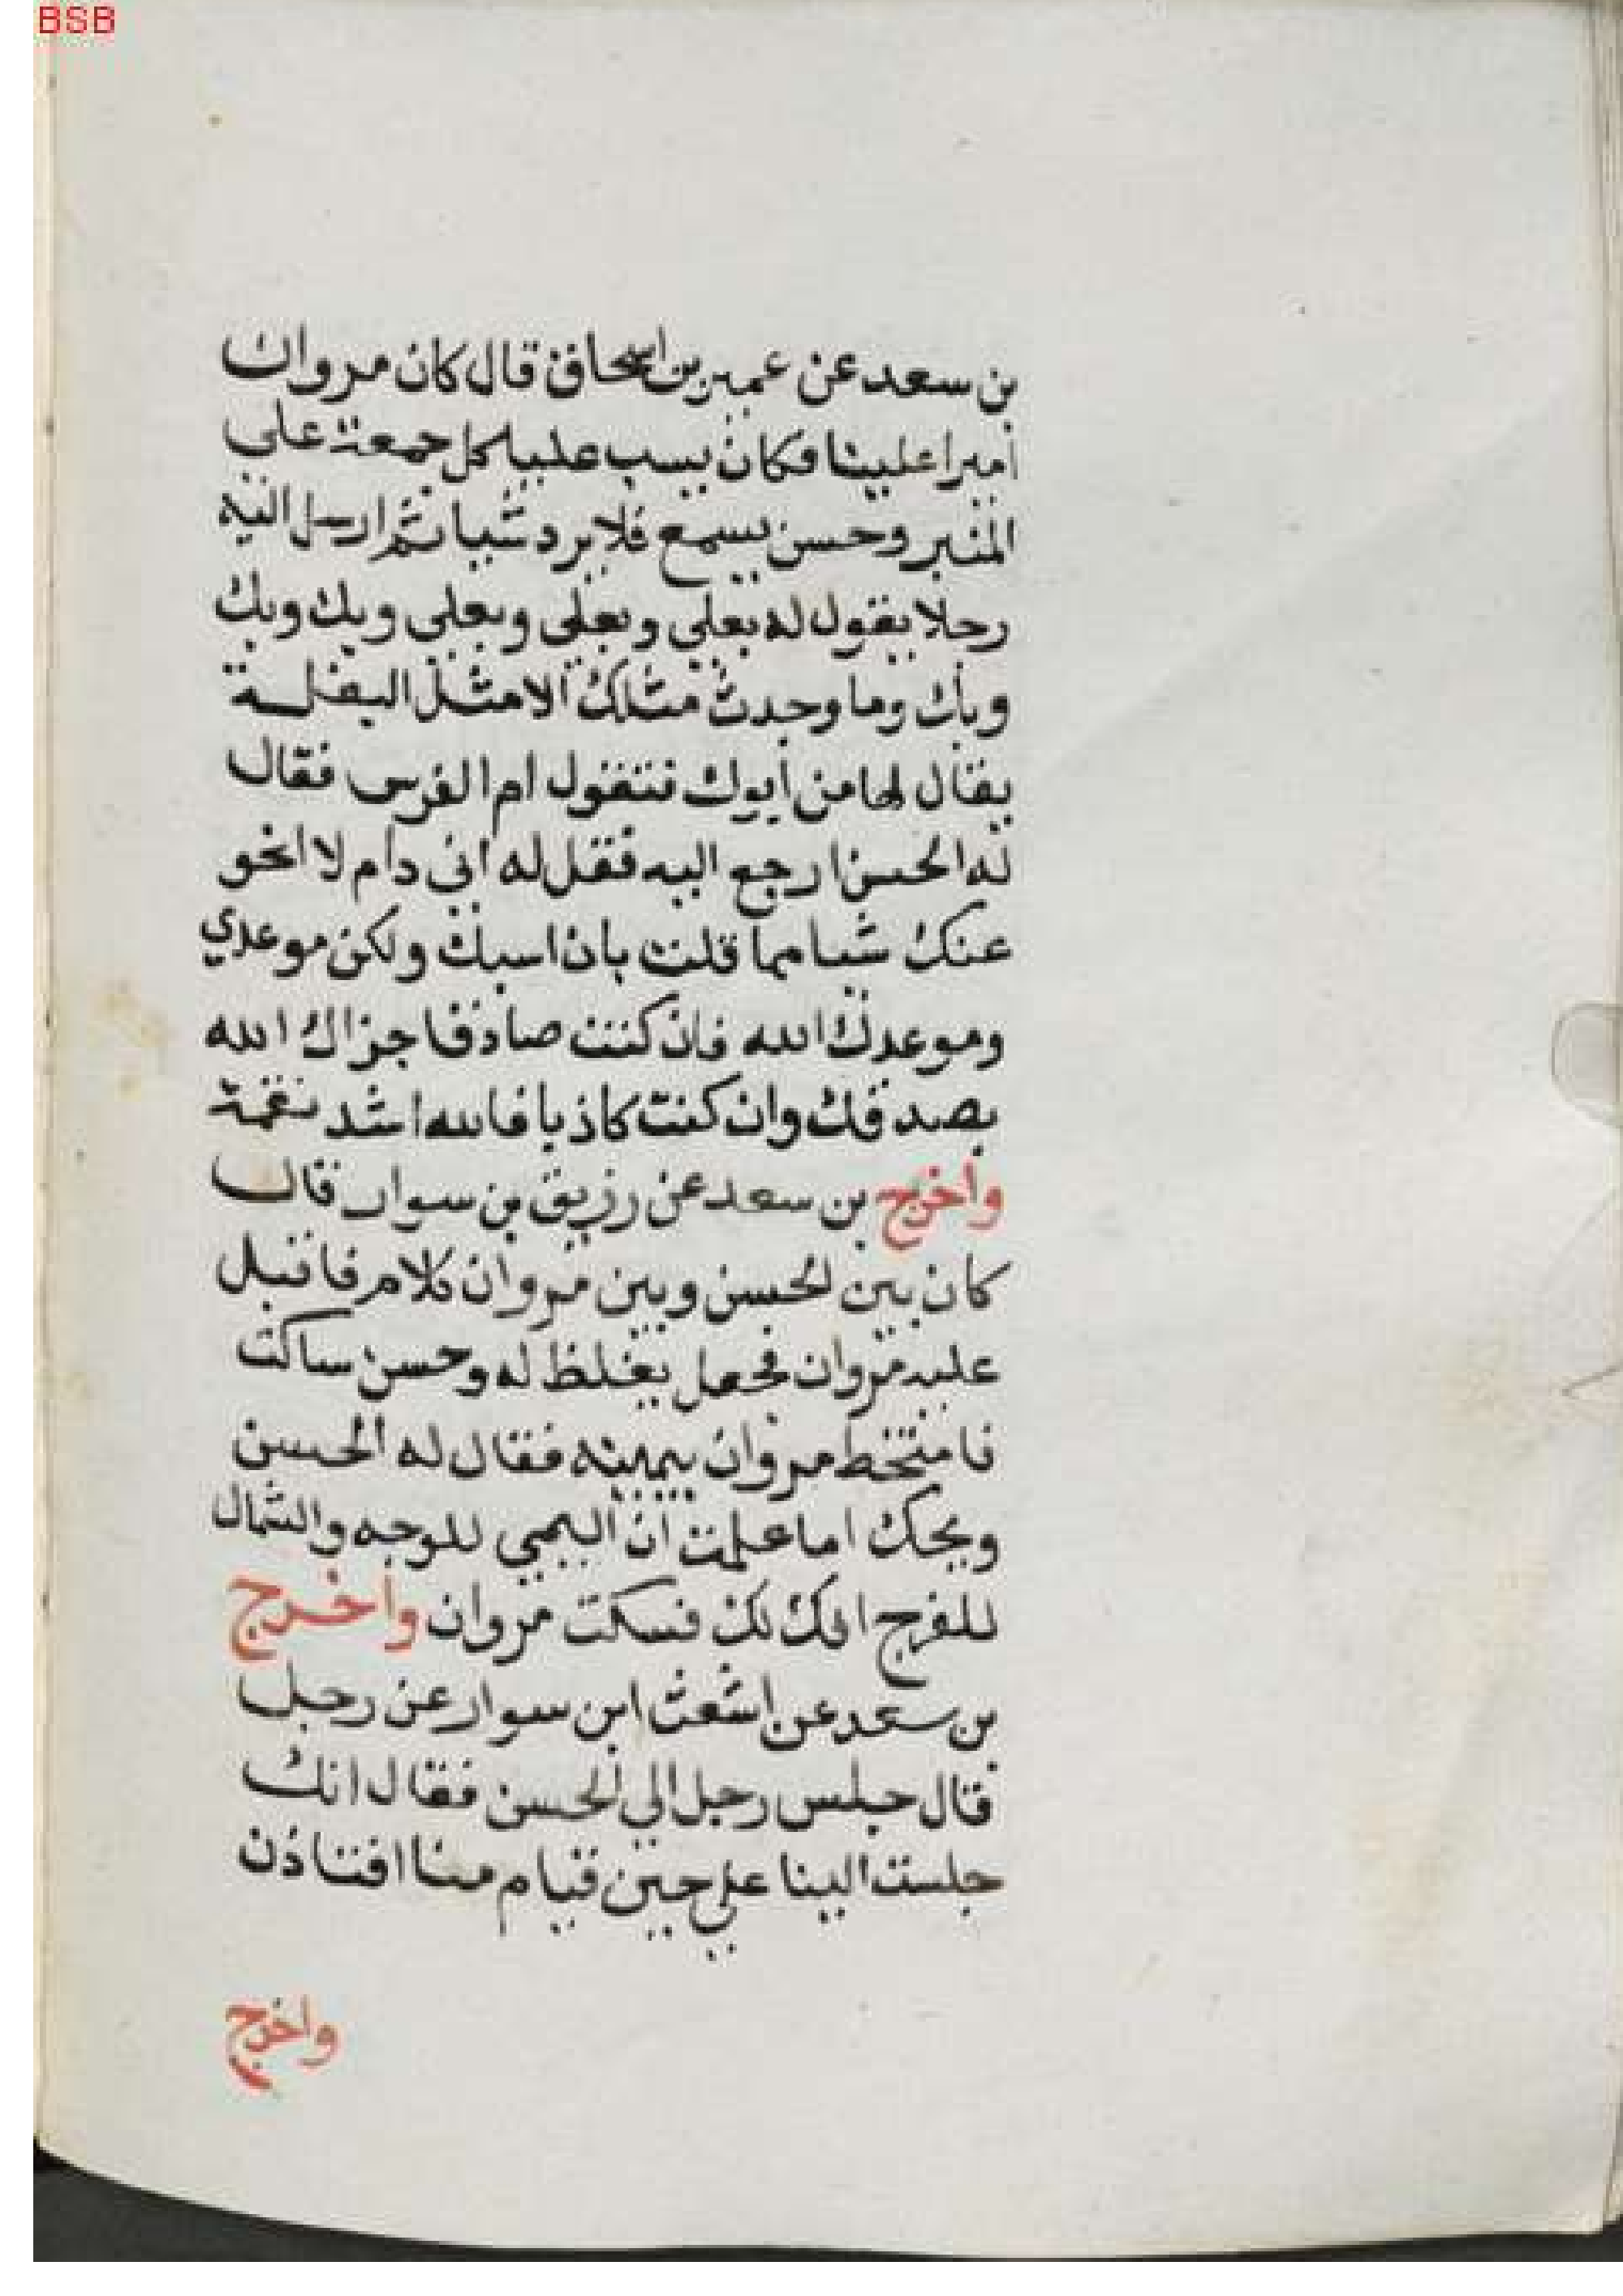 BSB
بن سعد عن عمير بن اسحاق قال كان مروان
اميرا علينا فكان يسب عليا كل جمعة علي
المنبر وحسن يسمع فلا يرد شيا ثم ارسل اليه
رجلا يقول له بعلي وبعلي وبعلي وبك وبك
وبك وما وجدت مثلك الا مثل البغلة
يقال لها من أبوك فتقول ام الفرس فقال
له الحسن ارجع اليه فقل له اني دام لا امحو
عنك شيا مما قلت بان اسبك ولكن موعدي
وموعدك الله فان كنت صادقا جزاك الله
بصدقك وان كنت كاذبا فالله اشد نقمة
واخرج بن سعد عن رزيق بن سوار قال
كان بين الحسن وبين مروان كلام فاقبل
عليه مروان فجعل يغلظ له وحسن ساكت
فامتخط مروان بيمينه فقال له الحسن
ويحك اما علمت ان اليمي للوجه والشمال
للفرج اف لك فسكت مروان واخرج
بن سعد عن اشعث ابن سوار عن رجل
قال جلس رجل الي الحسن فقال انك
جلست الينا علي حين قيام منا افتاذن
واخرج